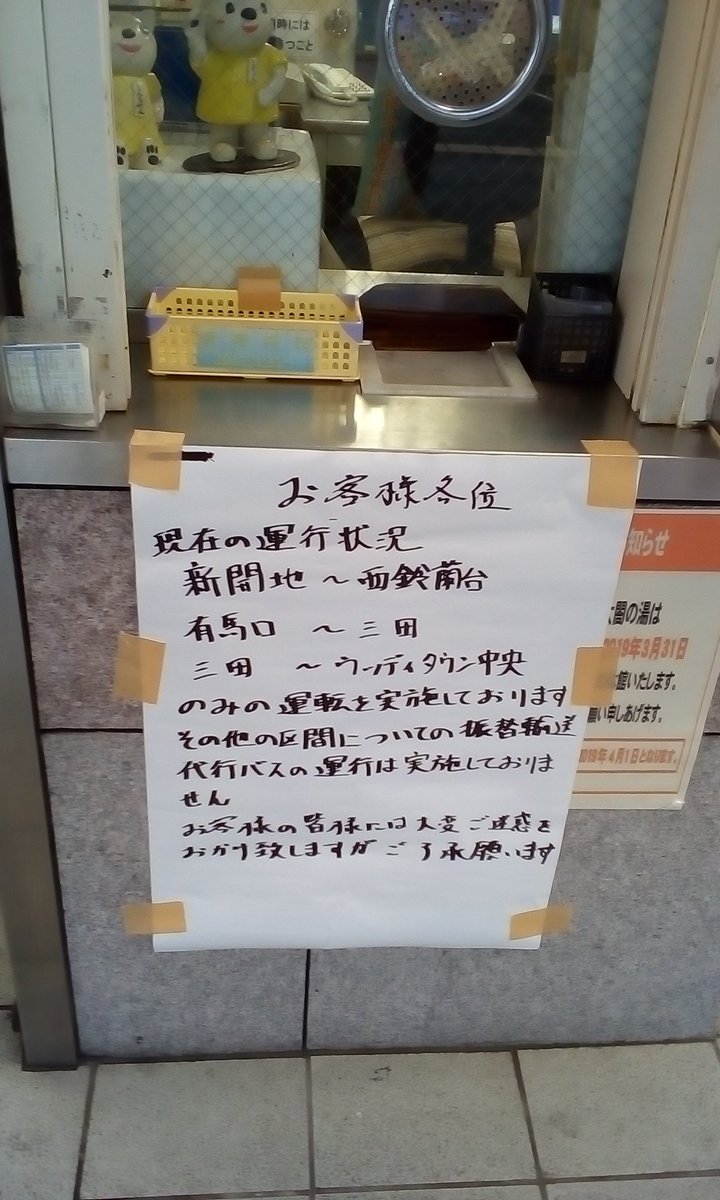 時には
つこと
お客様各位
現在の運行状況
新開地 ～ 西鈴蘭台
有馬口 ～ 三田
三田 ～ ウッディタウン中央
のみの運転を実施しております
その他の区間についての振替輸送
代行バスの運行は実施しておりま
せん
お客様の皆様には大変ご迷惑を
おかけ致しますがご了承願います
知らせ
太閤の湯は
2019年3月31日
館いたします。
願い申しあげます。
2019年4月1日となります。